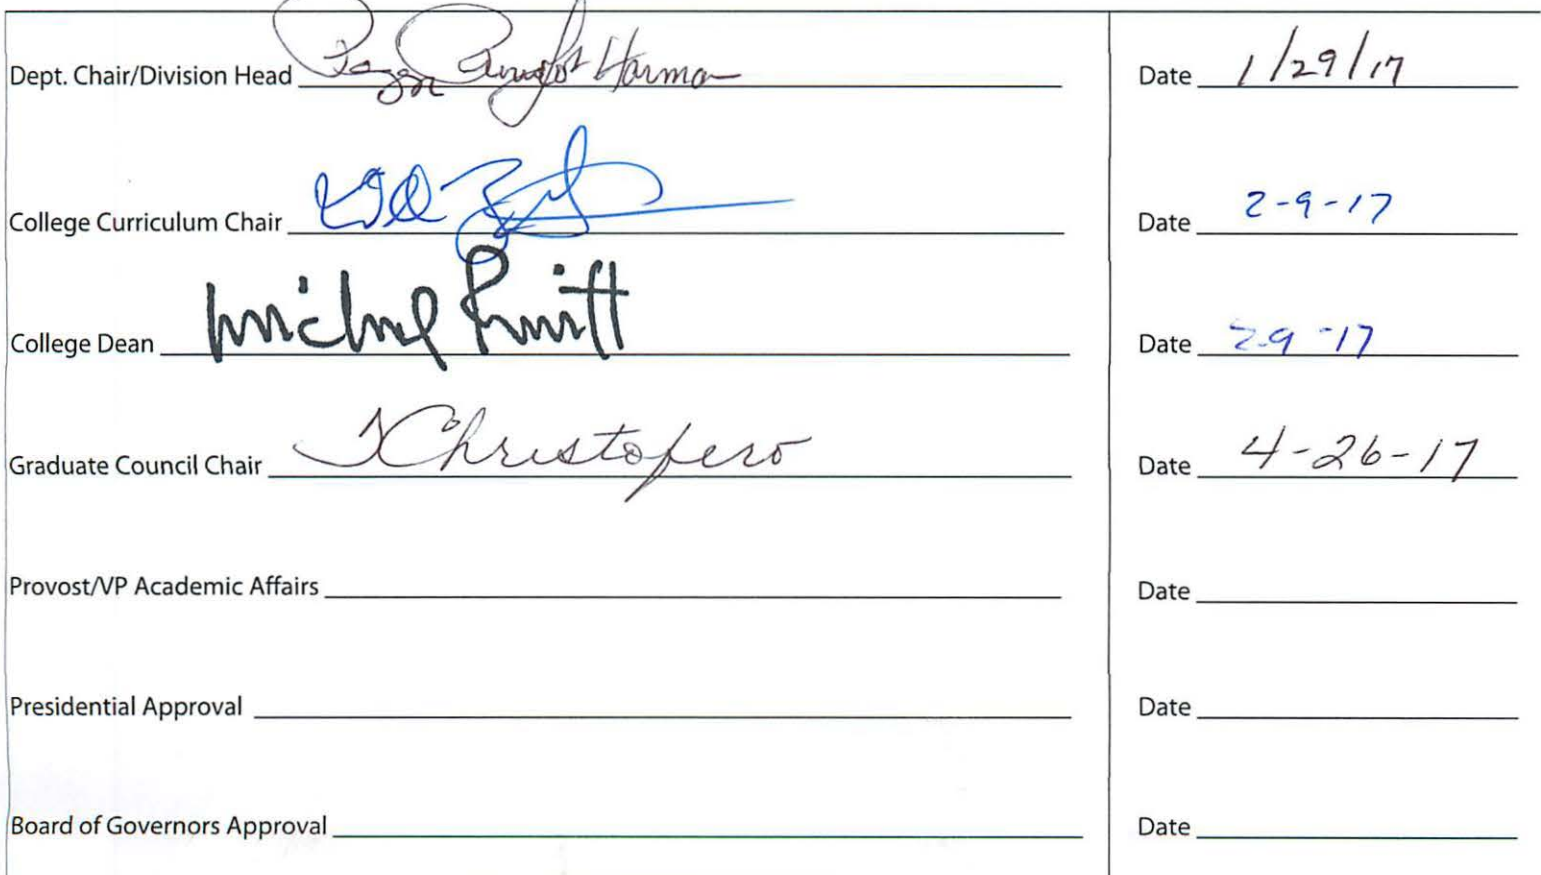 Dept. Chair/Division Head Harmon Date 1/29/17
College Curriculum Chair Date 2-9-17
College Dean Michael Prewitt Date 2-9-17
Graduate Council Chair TChristofero Date 4-26-17
Provost/VP Academic Affairs Date
Presidential Approval Date
Board of Governors Approval Date